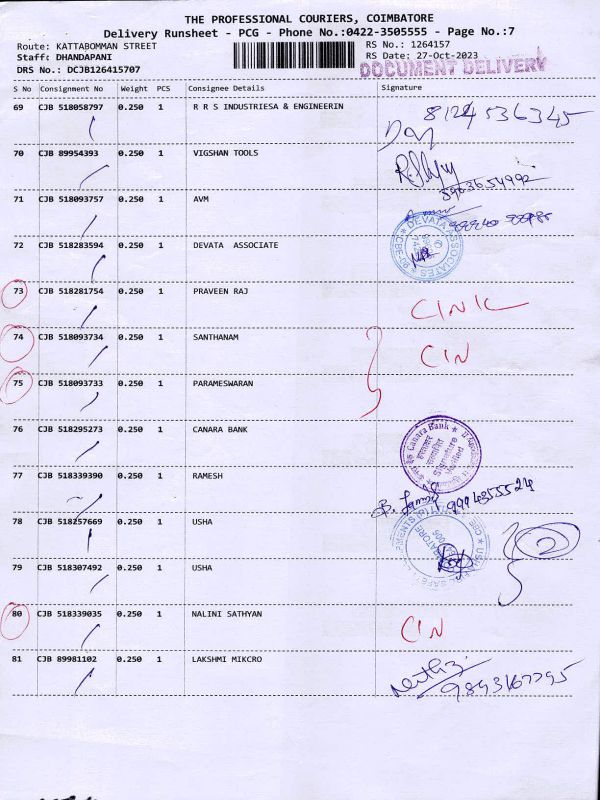 THE PROFESSIONAL COURIERS, COIMBATORE
Delivery Runsheet - PCG - Phone No.:0422-3505555 - Page No.:7
Route: KATTABOMMAN STREET
RS No.: 1264157
Staff: DHANDAPANI
RS Date: 27-Oct-2023
DRS No.: DCJB126415707
DOCUMENT DELIVERY
S No Consignment No Weight PCS Consignee Details Signature
69 CJB 518058797 0.250 1 R R S INDUSTRIESA & ENGINEERIN
8124536345
70 CJB 89954393 0.250 1 VIGSHAN TOOLS
71 CJB 518093757 0.250 1 AVM
72 CJB 518283594 0.250 1 DEVATA ASSOCIATE
DEVATA ASSOCIATES
73 CJB 518281754 0.250 1 PRAVEEN RAJ
74 CJB 518093734 0.250 1 SANTHANAM CIN
75 CJB 518093733 0.250 1 PARAMESWARAN
76 CJB 518295273 0.250 1 CANARA BANK
Canara Bank
Signature
Verified
77 CJB 518339390 0.250 1 RAMESH
78 CJB 518257669 0.250 1 USHA
79 CJB 518307492 0.250 1 USHA
2
80 CJB 518339035 0.250 1 NALINI SATHYAN CIN
81 CJB 89981102 0.250 1 LAKSHMI MIKCRO